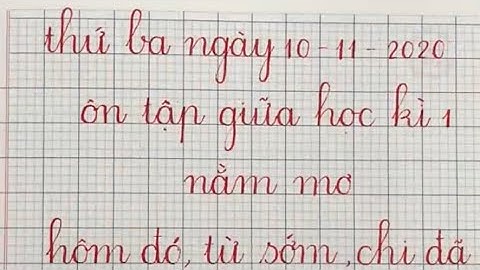 thứ ba ngày 10-11-2020
ôn tập giữa học kì 1
nằm mơ
hôm đó, từ sớm, chi đã